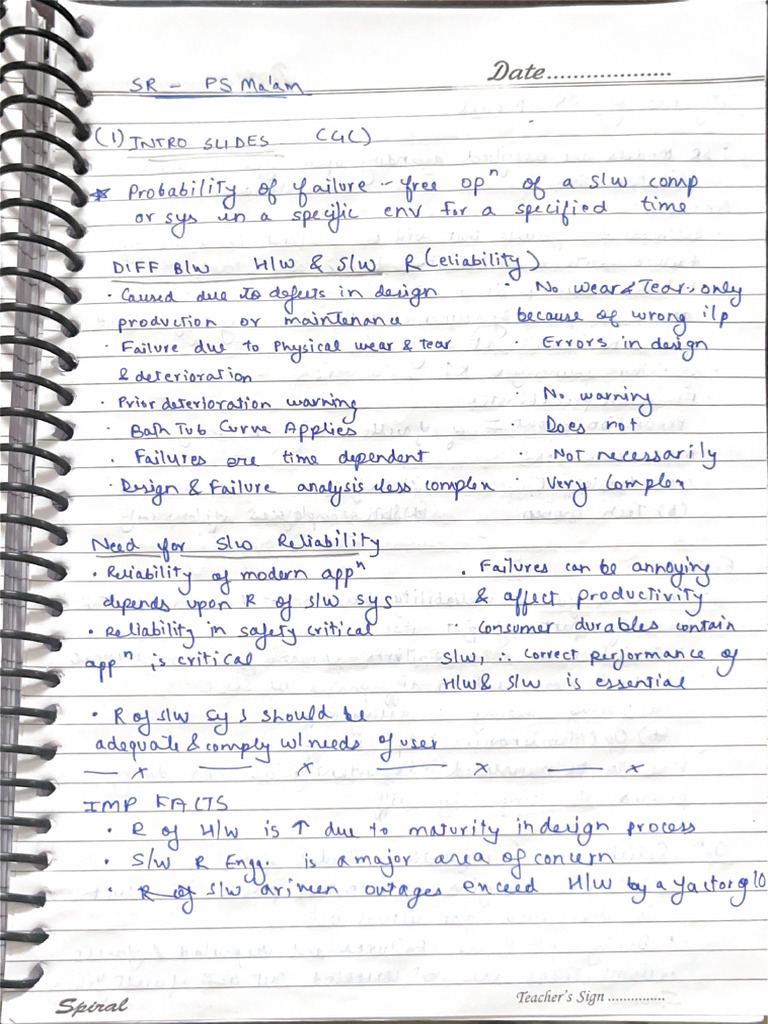 Date...................
SR - PS Ma'am
(1) INTRO SLIDES (GC)
* Probability of failure-free opⁿ of a s/w comp
or sys in a specific env for a specified time
DIFF B/W H/W & S/W R(eliability)
· Caused due to defects in design
production or maintenance
· Failure due to Physical wear & tear
& deterioration
· Prior deterioration warning
· Bath Tub Curve Applies
· Failures are time dependent
· Design & Failure analysis less complex
· No wear & Tear, only
because of wrong i/p
· Errors in design
· No warning
· Does not
· Not necessarily
· Very Complex
Need for S/w Reliability
· Reliability of modern appⁿ
depends upon R of s/w sys
· Reliability in safety critical
appⁿ is critical
· R of s/w sys should be
adequate & comply w/ needs of user
· Failures can be annoying
& affect productivity
· Consumer durables contain
S/w, ∴ correct performance of
H/w & S/w is essential
— x — x — x — x
IMP FACTS
· R of H/w is ↑ due to maturity in design process
· S/w R Engg. is a major area of concern
· R of S/w driven outages exceed H/w by a factor of 10
Spiral
Teacher's Sign ...............